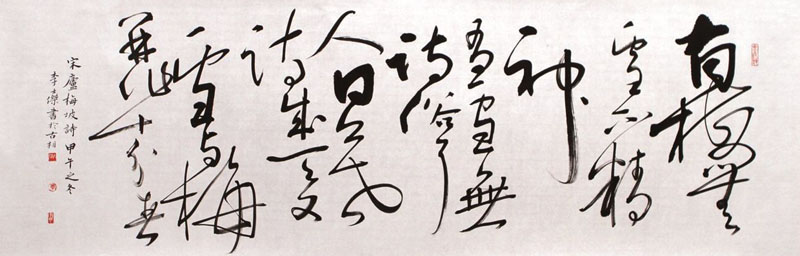 有梅無
雪不精
神
有雪無
詩俗了
人日暮
詩成天又
雪與梅
並作十分春
宋廬梅坡詩甲午之冬
李傑書於古相